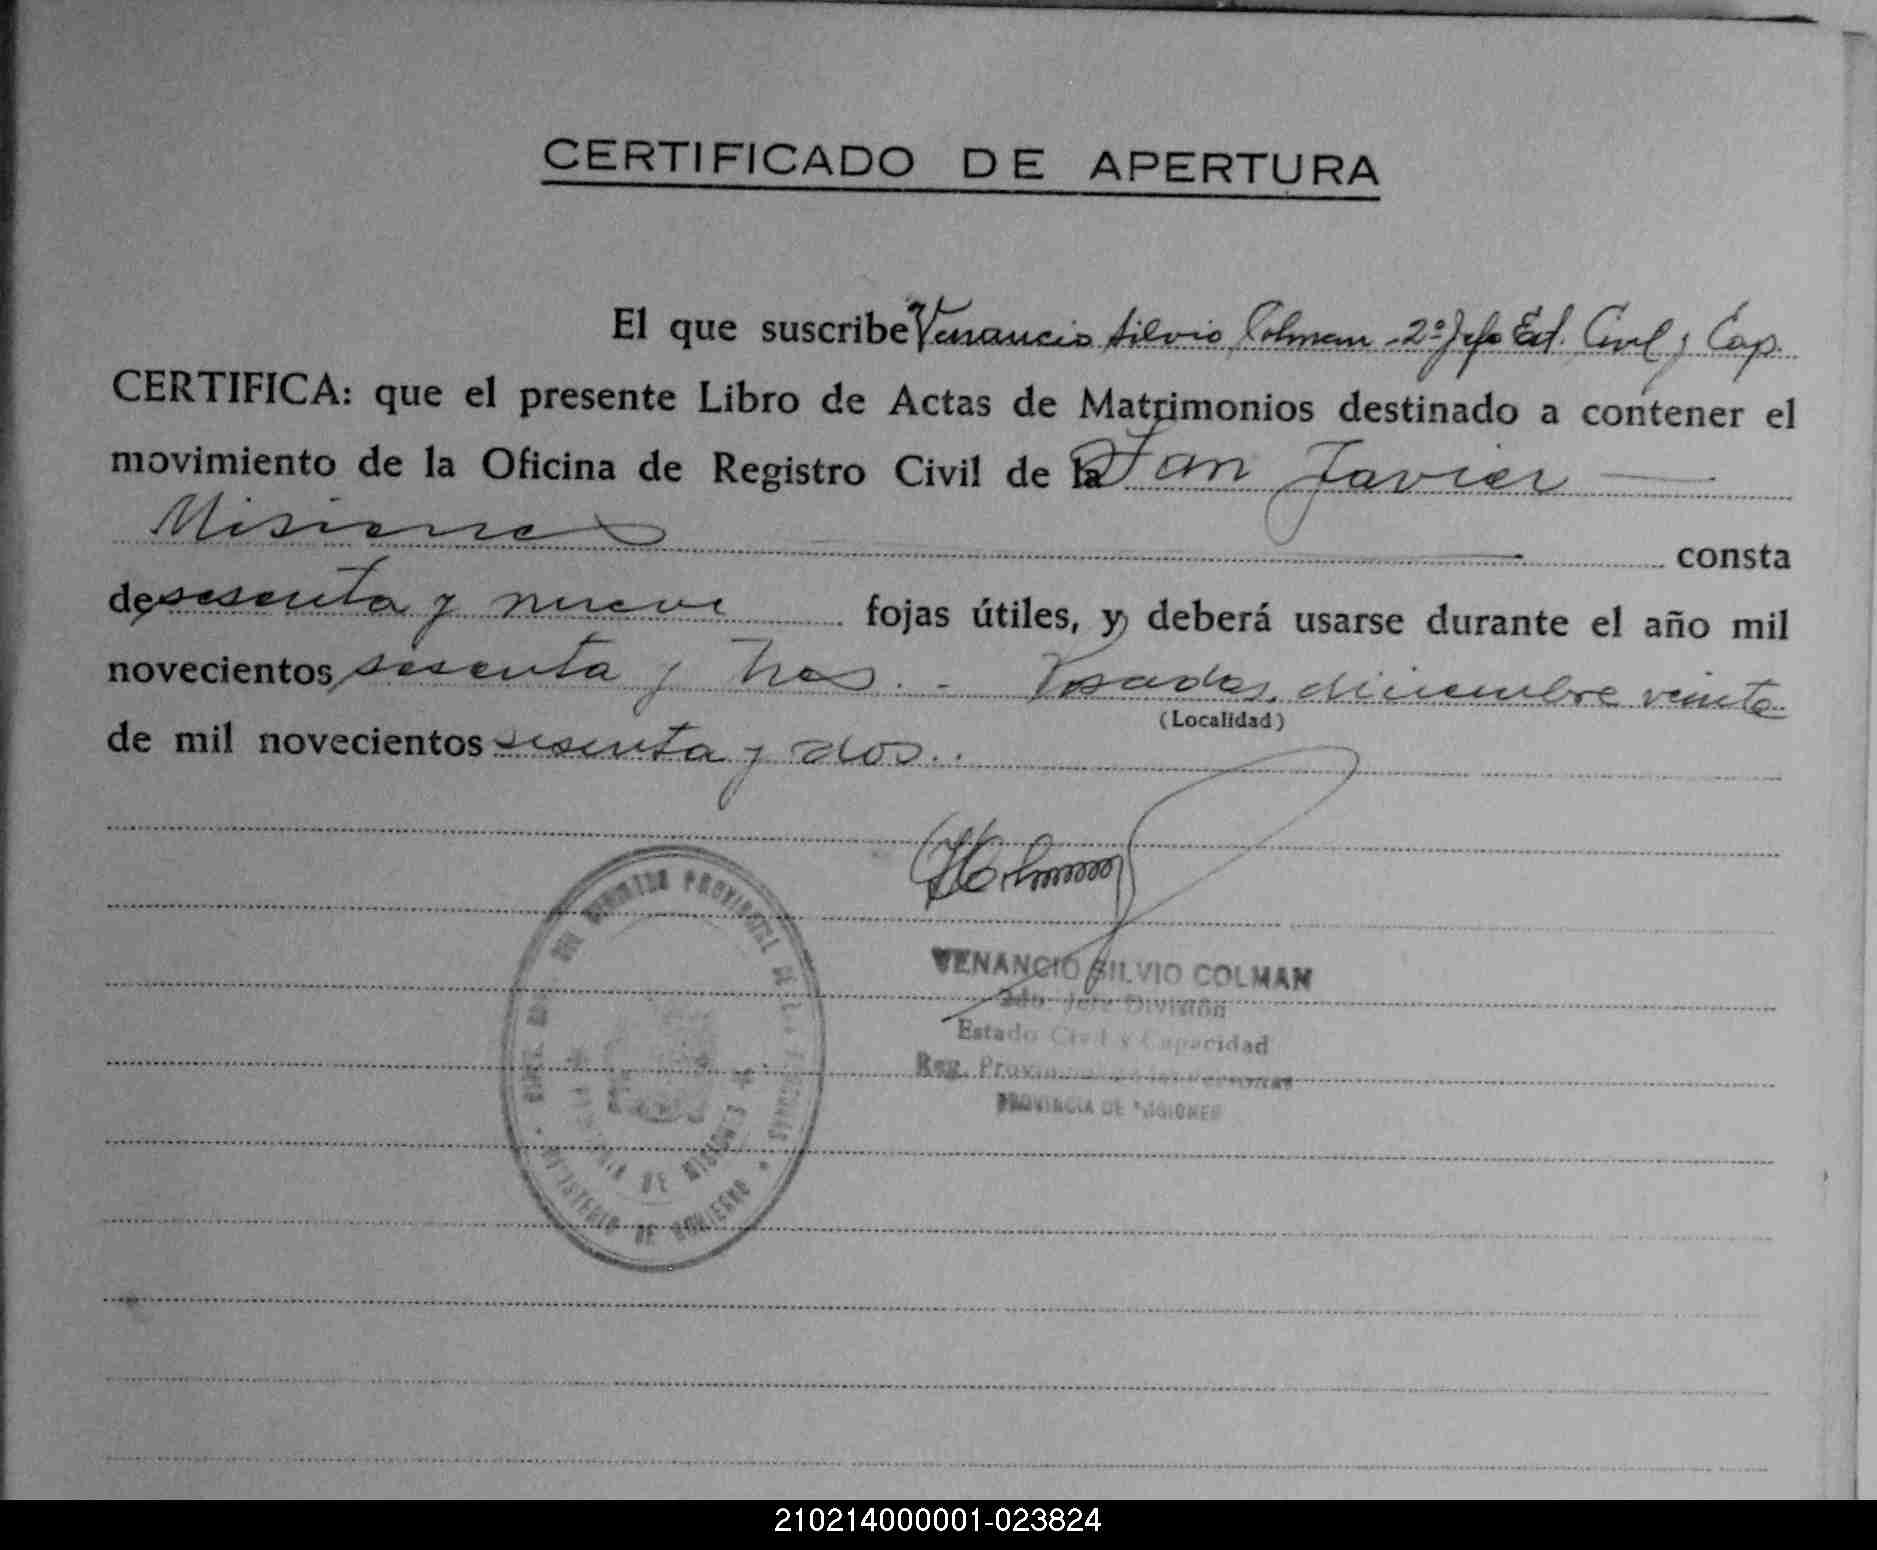 CERTIFICADO DE APERTURA
El que suscribe Venancio Silvio Colman - 2º Jefe Est. Civil y Cap.
CERTIFICA: que el presente Libro de Actas de Matrimonios destinado a contener el
movimiento de la Oficina de Registro Civil de la San Javier
Misiones consta
de sesenta y nueve fojas útiles, y deberá usarse durante el año mil
novecientos sesenta y tres. - Posadas, diciembre veinte
(Localidad)
de mil novecientos sesenta y dos..
Colman
VENANCIO SILVIO COLMAN
2do. Jefe División
Estado Civil y Capacidad
Reg. Provincial de las Personas
PROVINCIA DE MISIONES
PROVINCIAL DE LAS PERSONAS
PROVINCIA DE MISIONES
MINISTERIO DE GOBIERNO
210214000001-023824